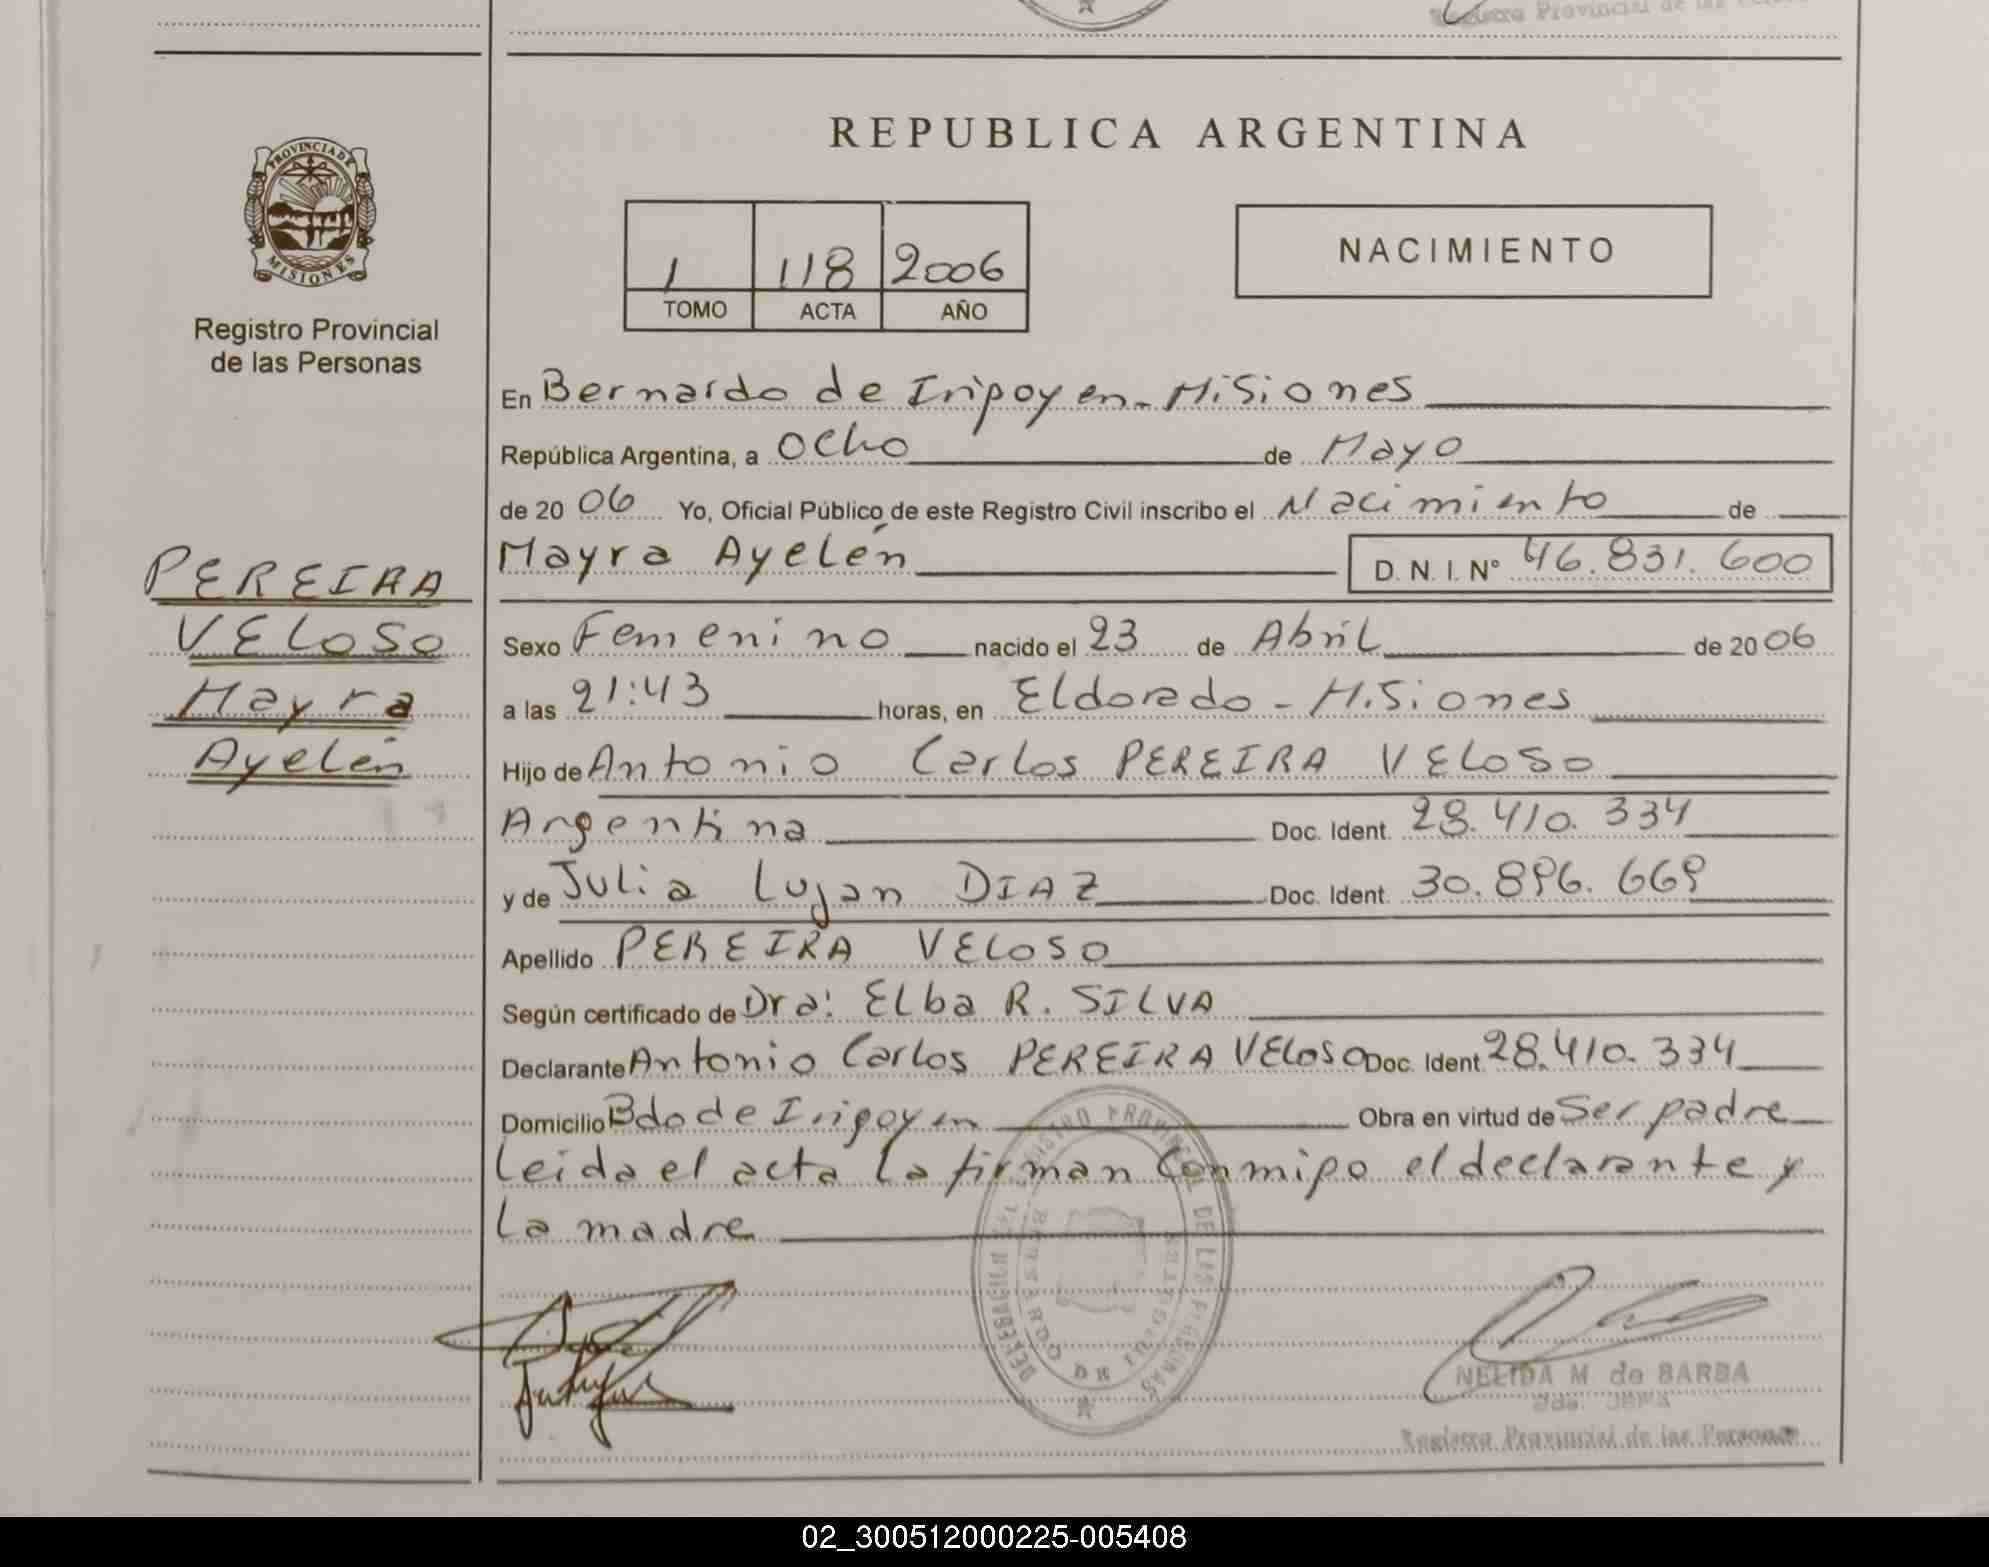 Registro Provincial de las
REPUBLICA ARGENTINA
PROVINCIA DE
MISIONES
Registro Provincial
de las Personas
1 118 2006
TOMO ACTA AÑO
NACIMIENTO
En Bernardo de Iripoyen - Misiones
República Argentina, a Ocho de Mayo
de 2006 Yo, Oficial Público de este Registro Civil inscribo el Nacimiento de
Mayra Ayelén D. N. I. Nº 46.831.600
PEREIRA
VELOSO
Mayra
Ayelén
Sexo Femenino nacido el 23 de Abril de 2006
a las 21:43 horas, en Eldorado - Misiones
Hijo de Antonio Carlos PEREIRA VELOSO
Argentina Doc. Ident. 28.410.334
y de Julia Lujan DIAZ Doc. Ident. 30.896.669
Apellido PEREIRA VELOSO
Según certificado de Dra: Elba R. SILVA
Declarante Antonio Carlos PEREIRA VELOSO Doc. Ident. 28.410.334
Domicilio Bdo de Iripoyen Obra en virtud de Ser padre
Leida el acta la firman conmipo el declarante y
la madre
DELEGACION DEL REGISTRO PROVINCIAL DE LAS PERSONAS
BERNARDO DE IRIGOYEN
NELIDA M. de BARBA
2da. JEFA
Registro Provincial de las Personas
02_300512000225-005408